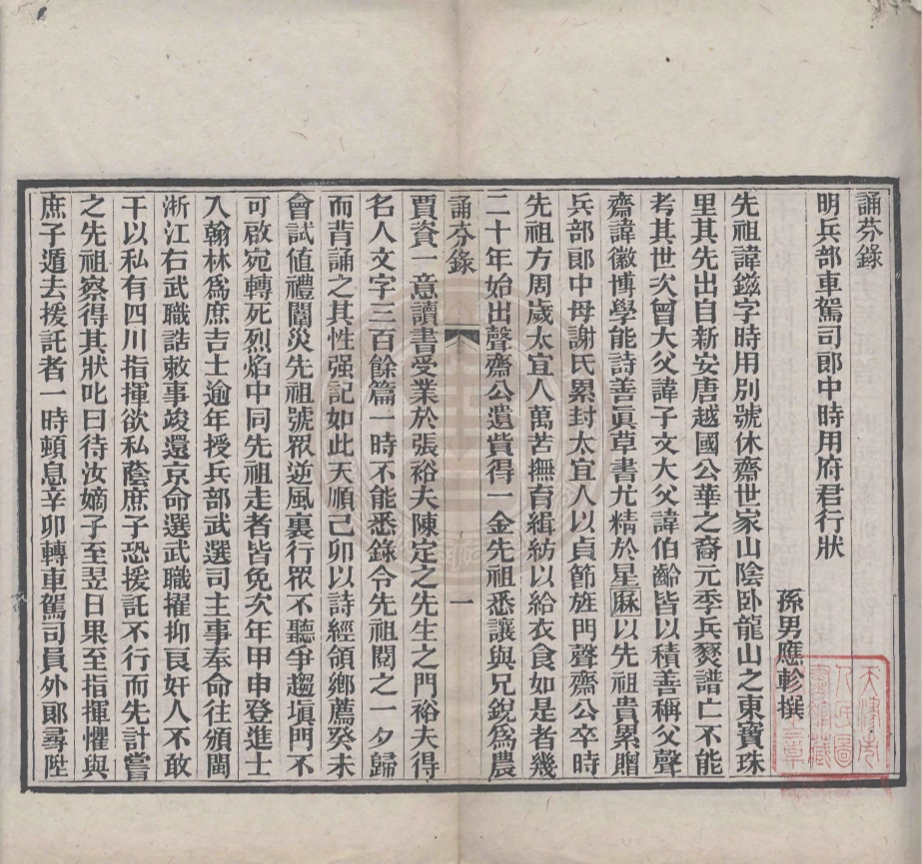 誦芬錄
明兵部車駕司郎中時用府君行狀
孫男應軫撰
先祖諱鎡字時用別號休齋世家山陰卧龍山之東寶珠
里其先出自新安唐越國公華之裔元季兵燹譜亡不能
考其世次曾大父諱子文大父諱伯齡皆以積善稱父聲
齋諱徽博學能詩善眞草書尤精於星厤以先祖貴累贈
兵部郎中母謝氏累封太宜人以貞節旌門聲齋公卒時
先祖方周歲太宜人萬苦撫育緝紡以給衣食如是者幾
二十年始出聲齋公遺貲得一金先祖悉讓與兄銳爲農
誦芬錄 一
賈資一意讀書受業於張裕夫陳定之先生之門裕夫得
名人文字三百餘篇一時不能悉錄令先祖閱之一夕歸
而背誦之其性强記如此天順己卯以詩經領鄉薦癸未
會試值禮闈災先祖號眾逆風裏行眾不聽爭趨塡門不
可啟宛轉死烈焰中同先祖走者皆免次年甲申登進士
入翰林爲庶吉士逾年授兵部武選司主事奉命往頒閩
浙江右武職誥敕事竣還京命選武職擢抑良奸人不敢
干以私有四川指揮欲私蔭庶子恐援託不行而先計嘗
之先祖察得其狀叱曰待汝嫡子至翌日果至指揮懼與
庶子遁去援託者一時頓息辛卯轉車駕司員外郎尋陞
天津市
人民圖
書館藏
書之章